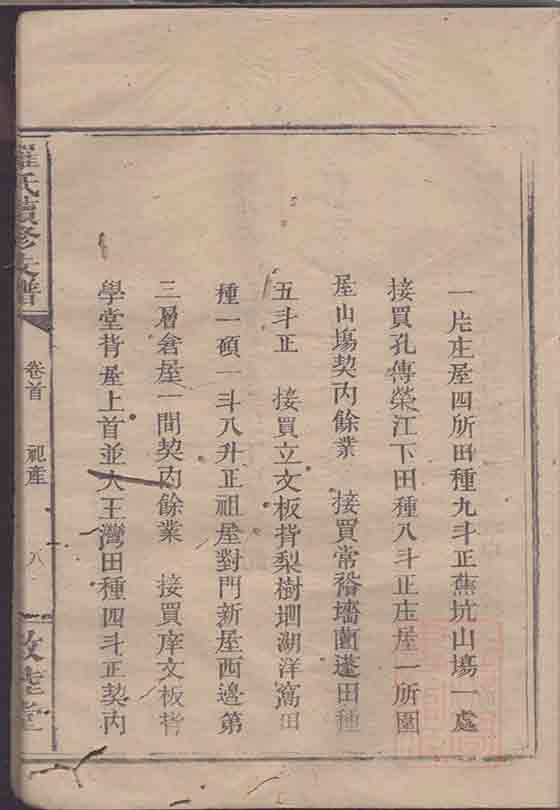 一片庄屋四所田種九斗正蕉坑山塲一處
接買孔傳榮江下田種八斗正庄屋一所圍
屋山塲契內餘業　接買常裕墻蘭蓬田種
五斗正　接買立文板背梨樹垇湖洋窩田
種一碩一斗八升正祖屋對門新屋西邉第
三層倉屋一間契內餘業　接買庠文板背
學堂背屋上首並大王灣田種四斗正契內
羅氏續修支譜
卷首　祀產　八
敦睦堂